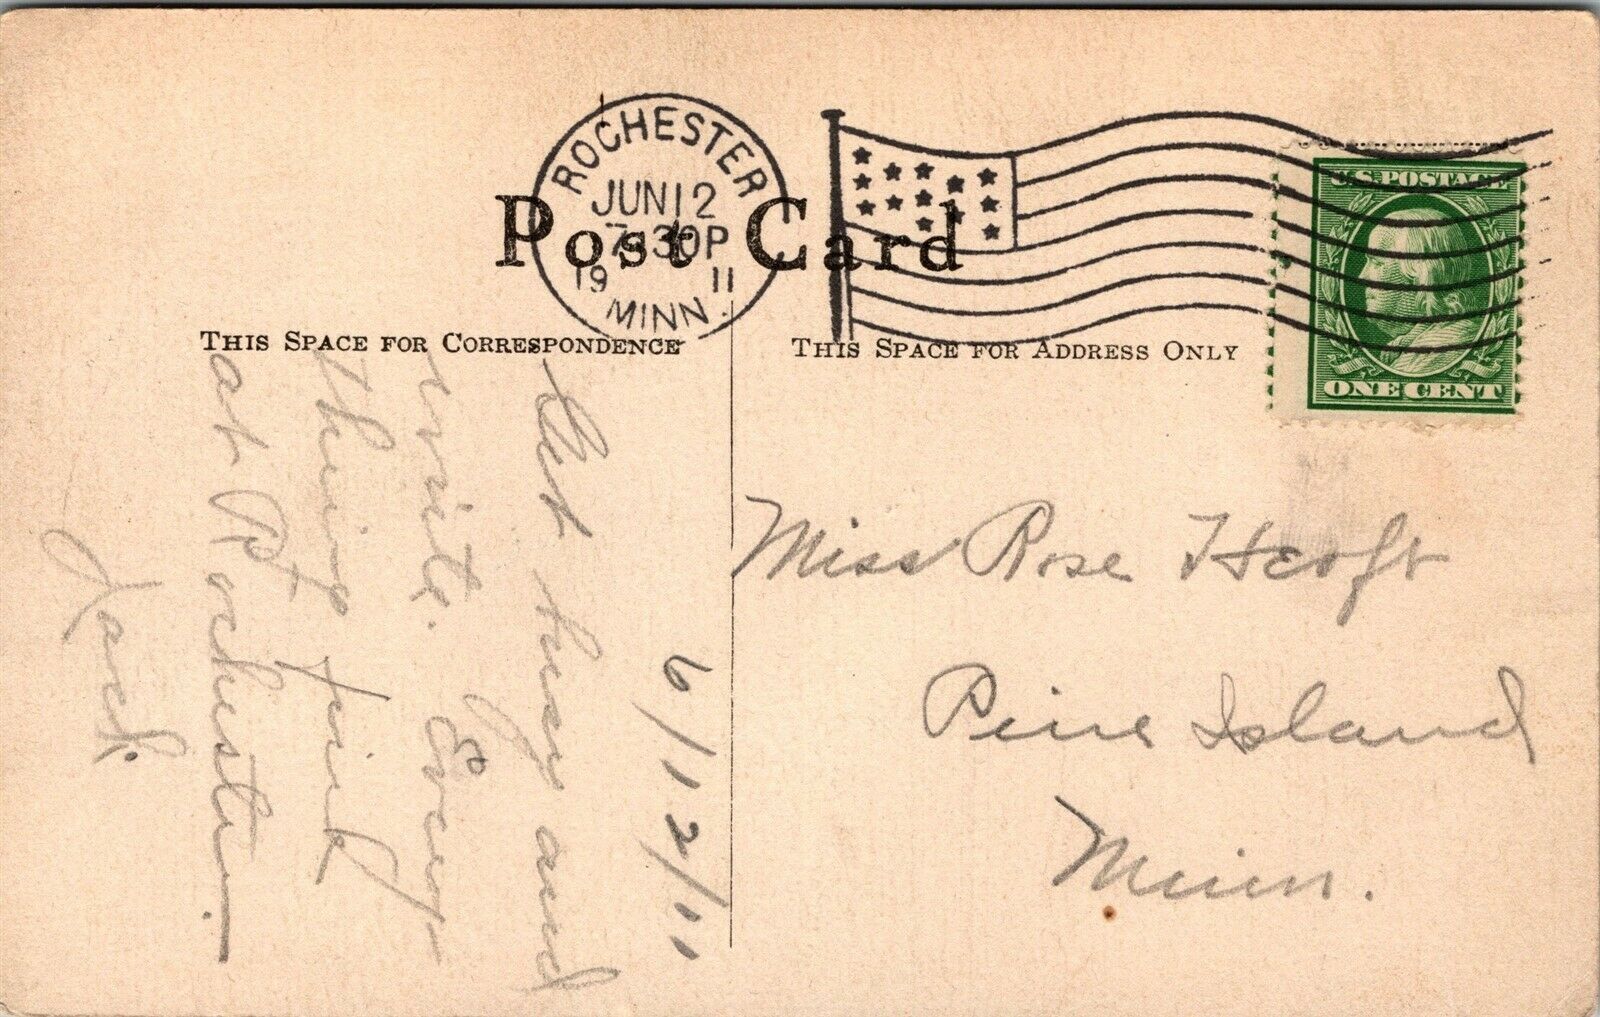 ROCHESTER
JUN 12
7 30P
19 11
MINN.
Post Card
U.S. POSTAGE
ONE CENT
THIS SPACE FOR CORRESPONDENCE
THIS SPACE FOR ADDRESS ONLY
6/12/11
Get busy and
write. Every
thing
at Rochester.
Jack.
Miss Rose
Pine Island
Minn.